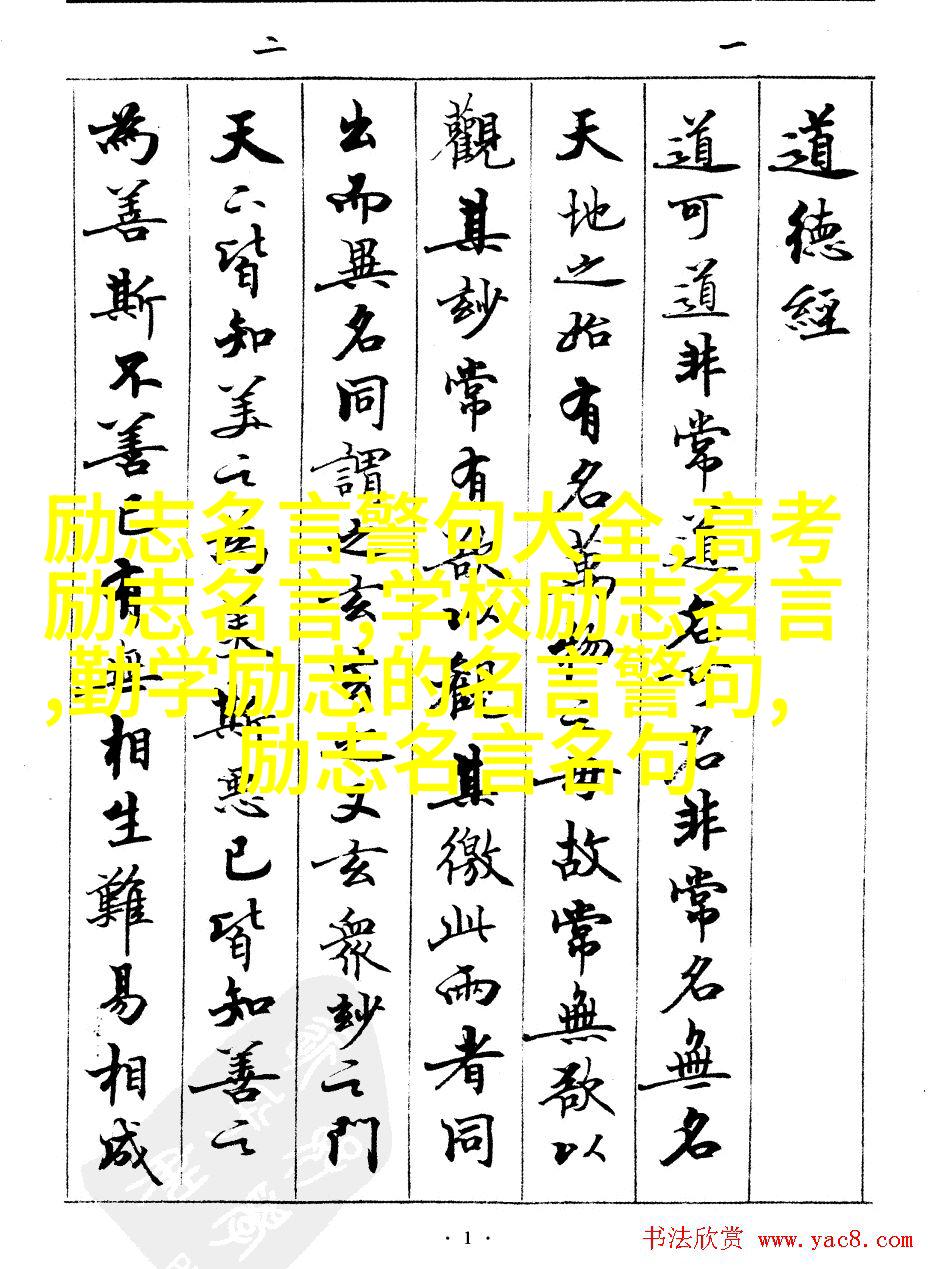 一
二
道德經
道可道非常道名可名非常名無名
天地之始有名萬物之母故常無欲以
觀其玅常有欲以觀其徼此兩者同
出而異名同謂之玄玄之又玄衆玅之門
天下皆知美之為美斯惡已皆知善之
為善斯不善已有無相生難易相成
励志名言警句大全,高考
励志名言,学校励志名言
,勤学励志的名言警句,
励志名言名句
· 1 ·
书法欣赏 www.yac8.com